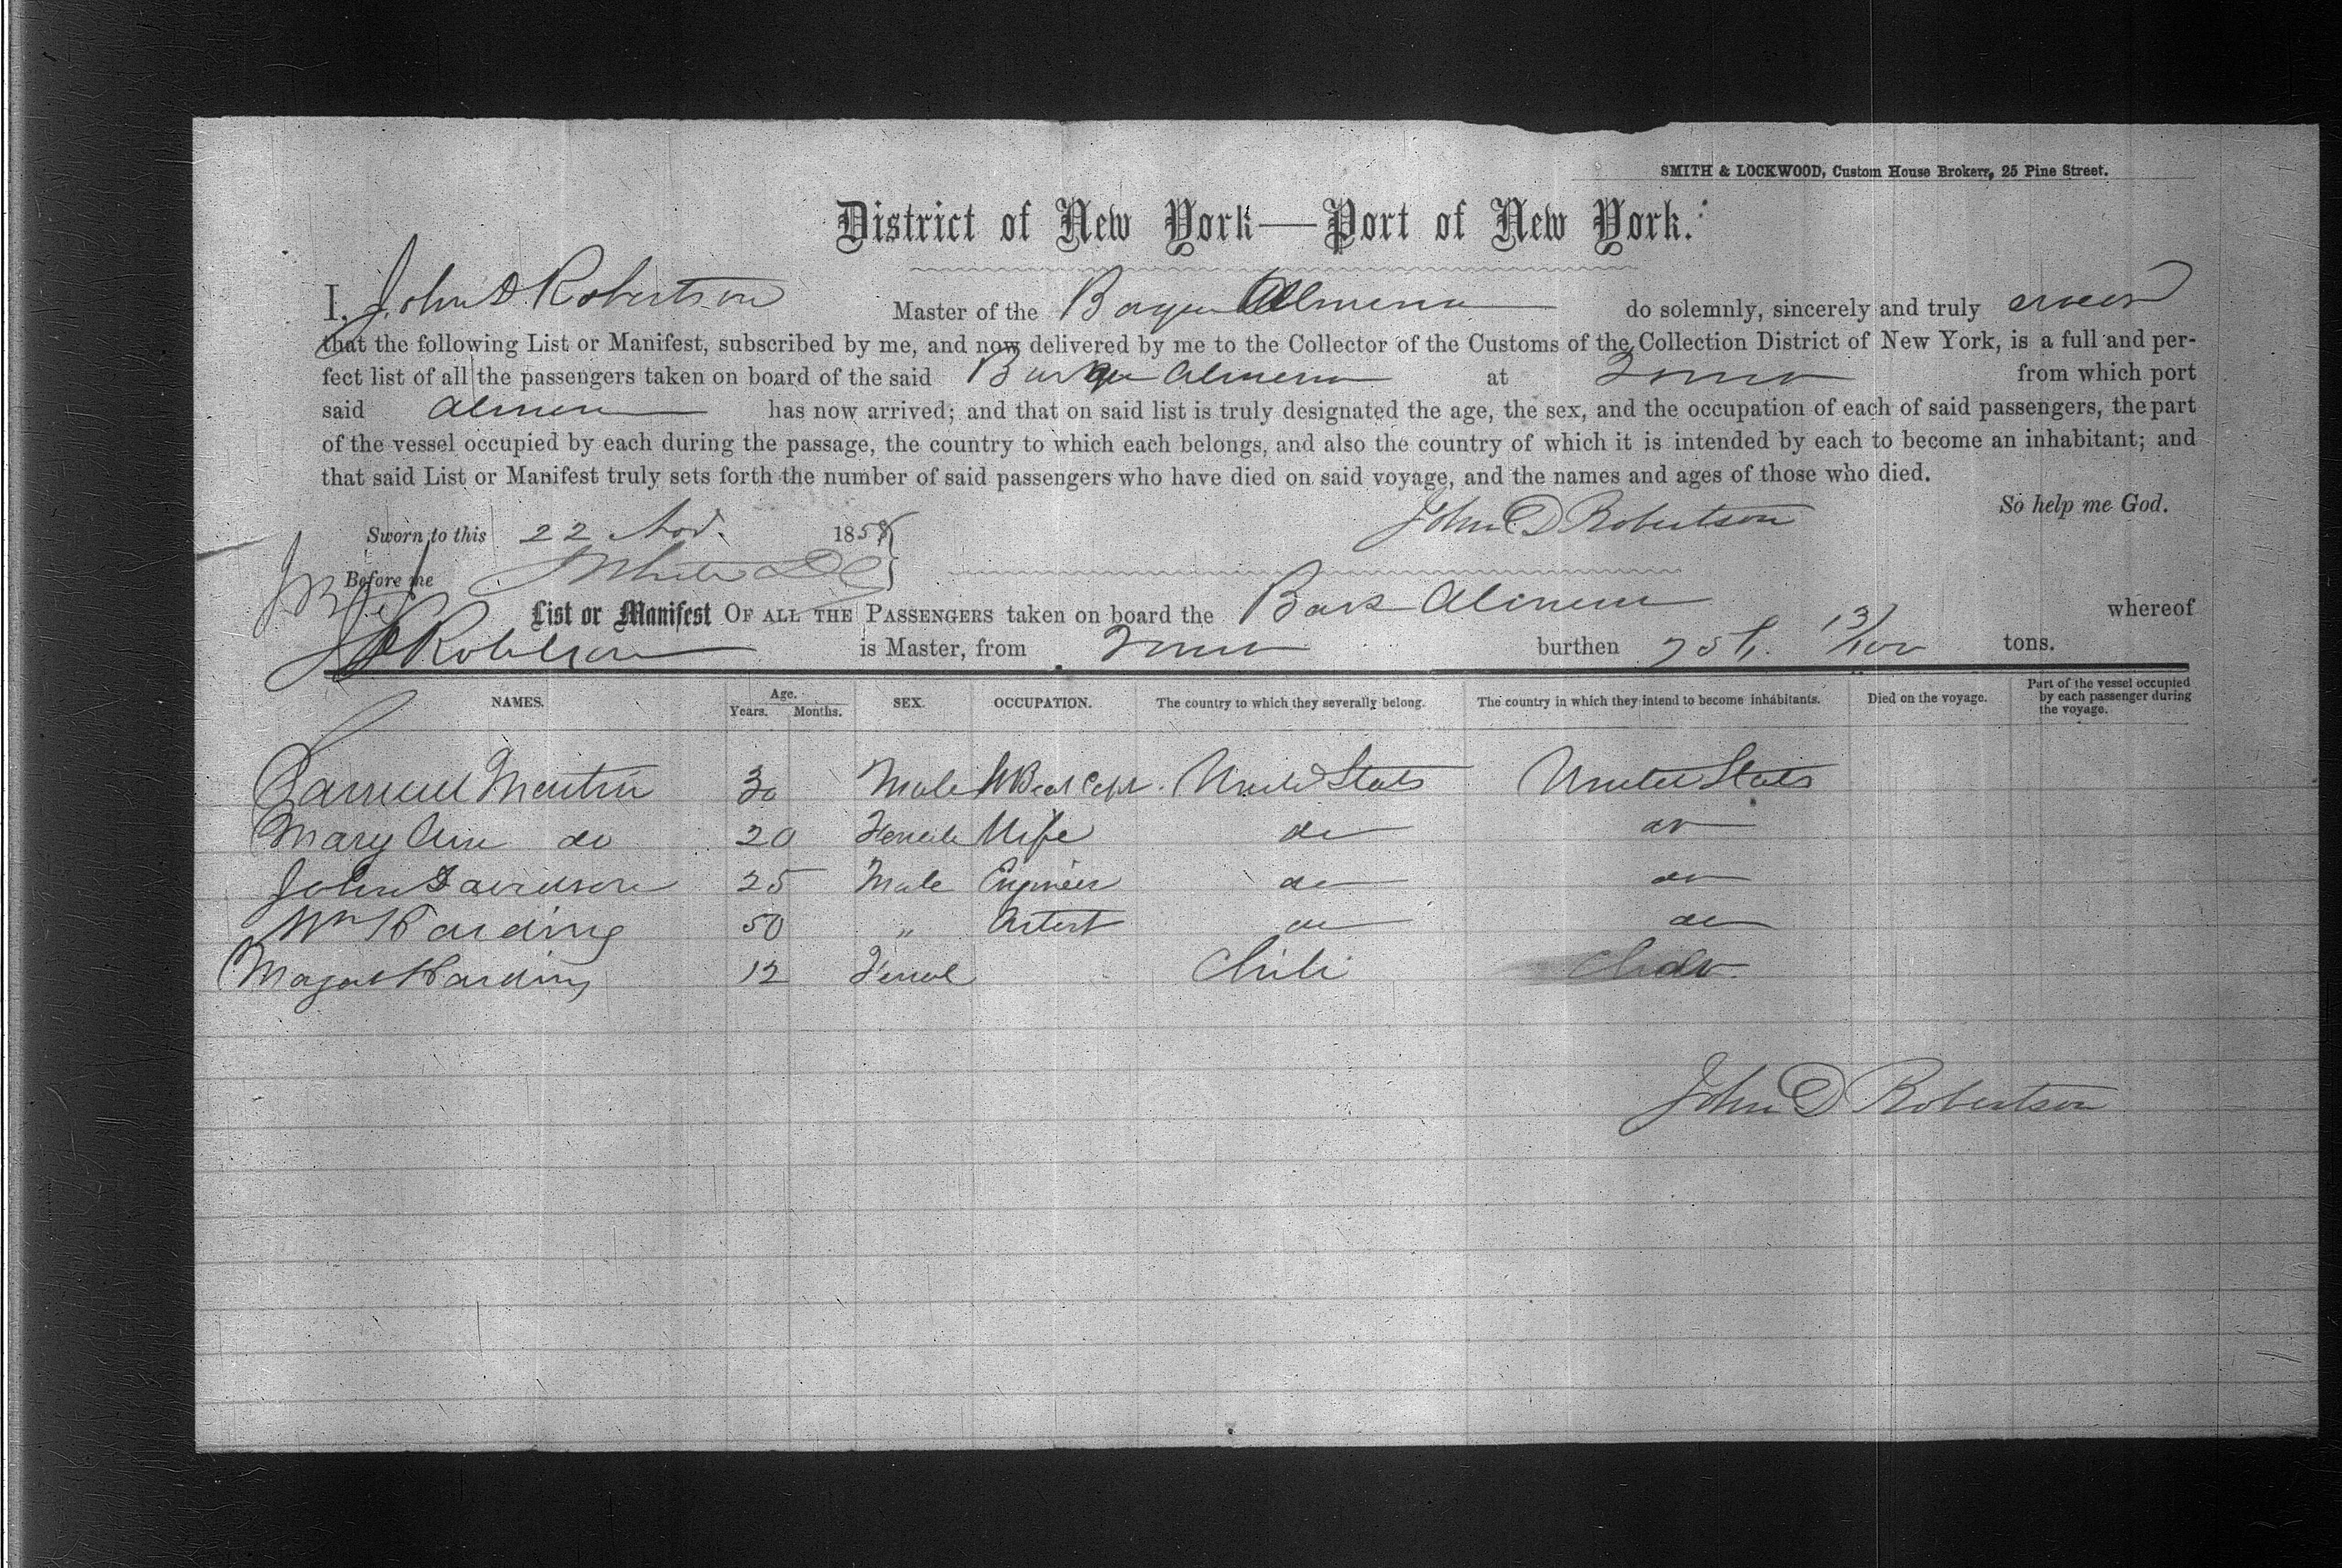 SMITH & LOCKWOOD, Custom House Brokers, 25 Pine Street.
District of New York—Port of New York.
I, John D Robertson Master of the Barque Almena do solemnly, sincerely and truly swear
that the following List or Manifest, subscribed by me, and now delivered by me to the Collector of the Customs of the Collection District of New York, is a full and per-
fect list of all the passengers taken on board of the said Barque Almena at from which port
said Almena has now arrived; and that on said list is truly designated the age, the sex, and the occupation of each of said passengers, the part
of the vessel occupied by each during the passage, the country to which each belongs, and also the country of which it is intended by each to become an inhabitant; and
that said List or Manifest truly sets forth the number of said passengers who have died on said voyage, and the names and ages of those who died.
So help me God.
Sworn to this 22 Nov. 185 John D Robertson
Before me
List or Manifest OF ALL THE PASSENGERS taken on board the Bark Almena whereof
J D Robertson is Master, from burthen 13/100 tons.
NAMES. Age. Years. Months. SEX. OCCUPATION. The country to which they severally belong. The country in which they intend to become inhabitants. Died on the voyage. Part of the vessel occupied by each passenger during the voyage.
Samuel Martin 30 Male United States United States
Mary Ann do 20 Female Wife do do
John Davidson 25 Male Engineer do do
Wm Harding 50 " Artist do do
Margat Harding 12 Femal Chili do
John D Robertson